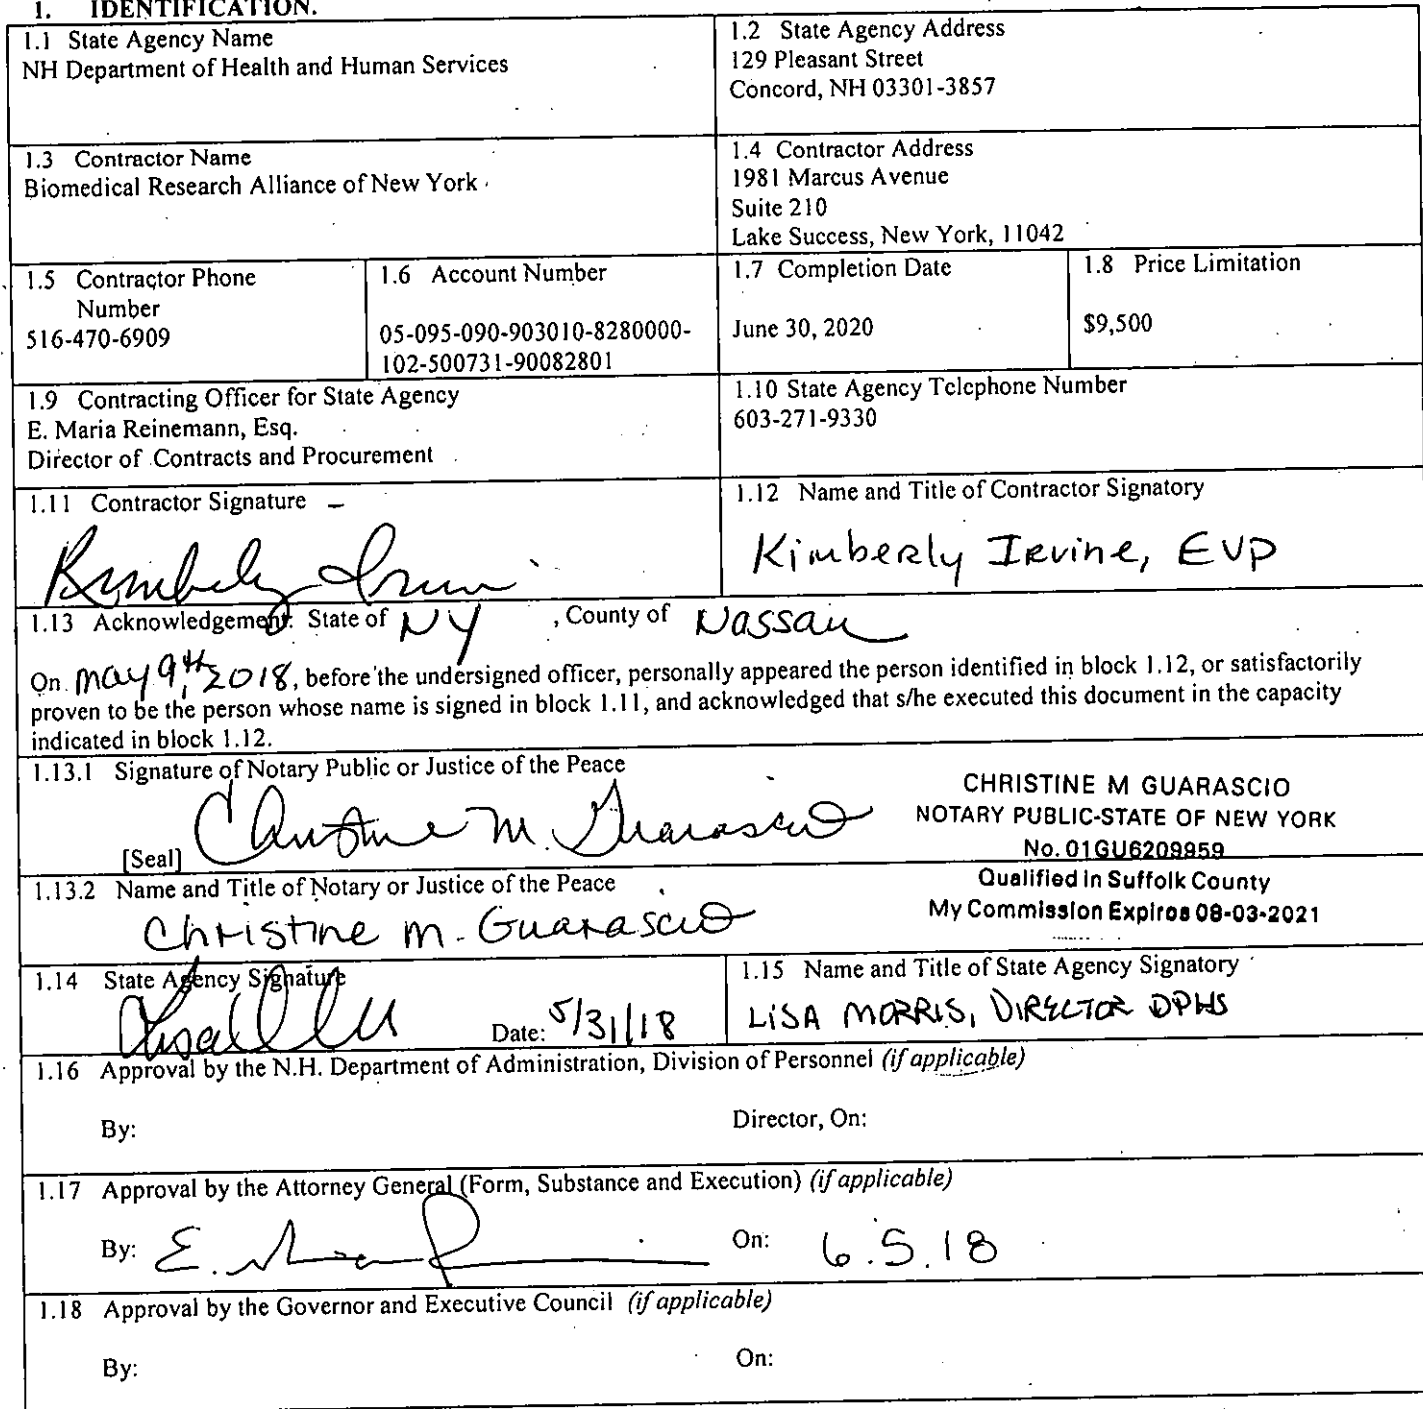 1. IDENTIFICATION.
1.1 State Agency Name
NH Department of Health and Human Services
1.2 State Agency Address
129 Pleasant Street
Concord, NH 03301-3857
1.3 Contractor Name
Biomedical Research Alliance of New York
1.4 Contractor Address
1981 Marcus Avenue
Suite 210
Lake Success, New York, 11042
1.5 Contractor Phone
Number
516-470-6909
1.6 Account Number
05-095-090-903010-8280000-
102-500731-90082801
1.7 Completion Date
June 30, 2020
1.8 Price Limitation
$9,500
1.9 Contracting Officer for State Agency
E. Maria Reinemann, Esq.
Director of Contracts and Procurement
1.10 State Agency Telephone Number
603-271-9330
1.11 Contractor Signature
Kimberly Irvine
1.12 Name and Title of Contractor Signatory
Kimberly Irvine, EVP
1.13 Acknowledgement: State of NY , County of Nassau
On May 9th, 2018, before the undersigned officer, personally appeared the person identified in block 1.12, or satisfactorily
proven to be the person whose name is signed in block 1.11, and acknowledged that s/he executed this document in the capacity
indicated in block 1.12.
1.13.1 Signature of Notary Public or Justice of the Peace
Christine M. Guarascio
[Seal]
CHRISTINE M GUARASCIO
NOTARY PUBLIC-STATE OF NEW YORK
No. 01GU6209959
Qualified in Suffolk County
My Commission Expires 08-03-2021
1.13.2 Name and Title of Notary or Justice of the Peace
Christine M. Guarascio
1.14 State Agency Signature
Date: 5/31/18
1.15 Name and Title of State Agency Signatory
LISA MORRIS, DIRECTOR DPHS
1.16 Approval by the N.H. Department of Administration, Division of Personnel (if applicable)
By:
Director, On:
1.17 Approval by the Attorney General (Form, Substance and Execution) (if applicable)
By:
On: 6.5.18
1.18 Approval by the Governor and Executive Council (if applicable)
By:
On: